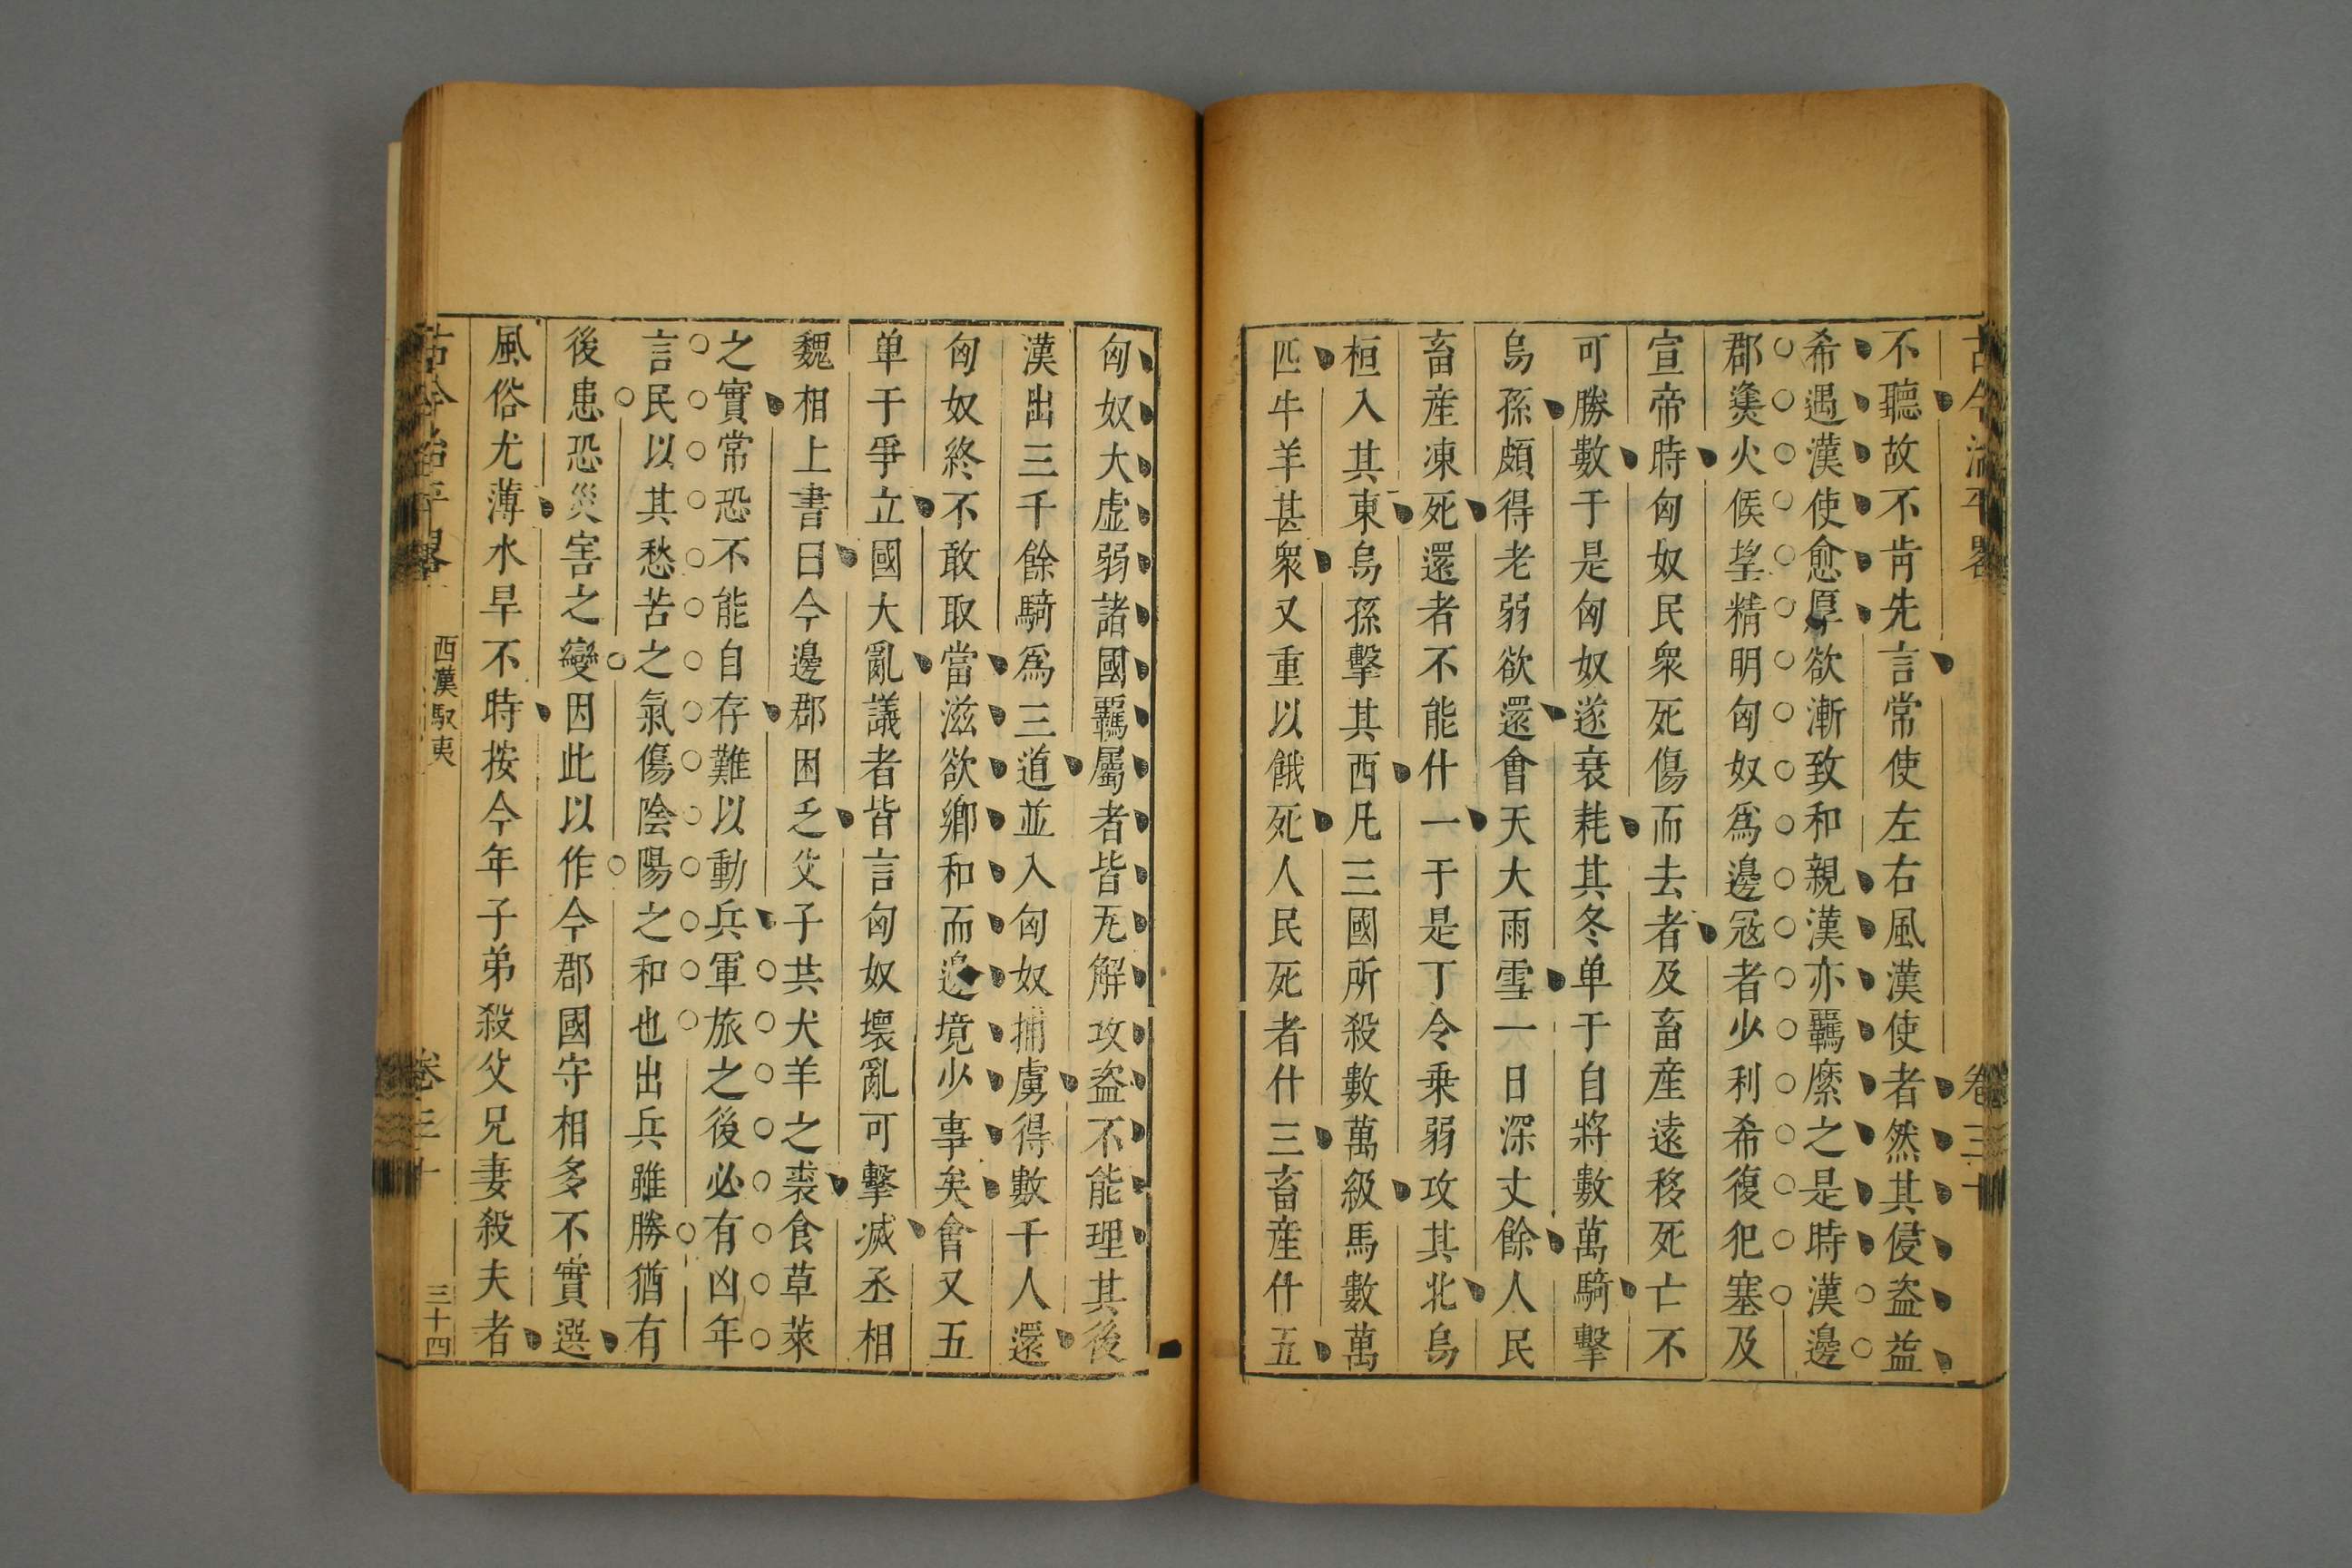 古今治平畧 卷三十
不聽故不肯先言常使左右風漢使者然其侵盗益
希遇漢使愈厚欲漸致和親漢亦羈縻之是時漢邊
郡㷭火候朢精明匈奴爲邊冦者少利希復犯塞及
宣帝時匈奴民衆死傷而去者及畜産遠移死亡不
可勝數于是匈奴遂衰耗其冬单于自將數萬騎擊
烏孫頗得老弱欲還會天大雨雪一日深丈餘人民
畜産凍死還者不能什一于是丁令乗弱攻其北烏
桓入其東烏孫擊其西凡三國所殺數萬級馬數萬
匹牛羊甚衆又重以餓死人民死者什三畜産什五
匈奴大虛弱諸國羈屬者皆瓦解攻盗不能理其後
漢出三千餘騎爲三道並入匈奴捕虜得數千人還
匈奴終不敢取當滋欲鄉和而邊境少事矣會又五
单于爭立國大亂議者皆言匈奴壞亂可擊滅丞相
魏相上書曰今邊郡困乏父子共犬羊之裘食草萊
之實常恐不能自存難以動兵軍旅之後必有凶年
言民以其愁苦之氣傷陰陽之和也出兵雖勝猶有
後患恐災害之變因此以作今郡國守相多不實選
風俗尤薄水旱不時按今年子弟殺父兄妻殺夫者
古今治平畧 西漢馭夷 卷三十 三十四